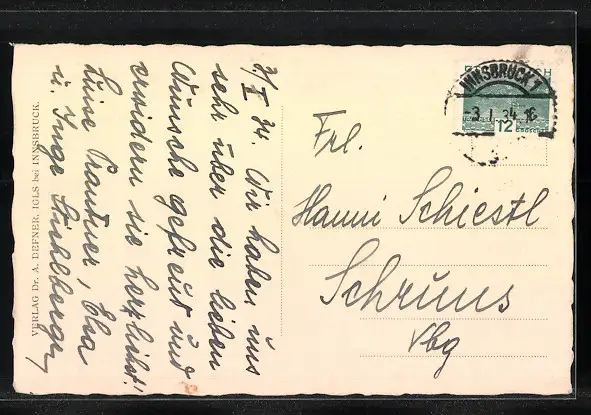 3./I 34. Wir haben uns
sehr über die lieben
Wünsche gefreut und
erwidern sie herzlichst!
Luise Prantner, Elsa
u. Inge Stichlberger
VERLAG Dr. A. DEFNER, IGLS bei INNSBRUCK.
INNSBRUCK 1
-3.I.34.18
12
Frl.
Hanni Schiestl
Schruns
Vbg